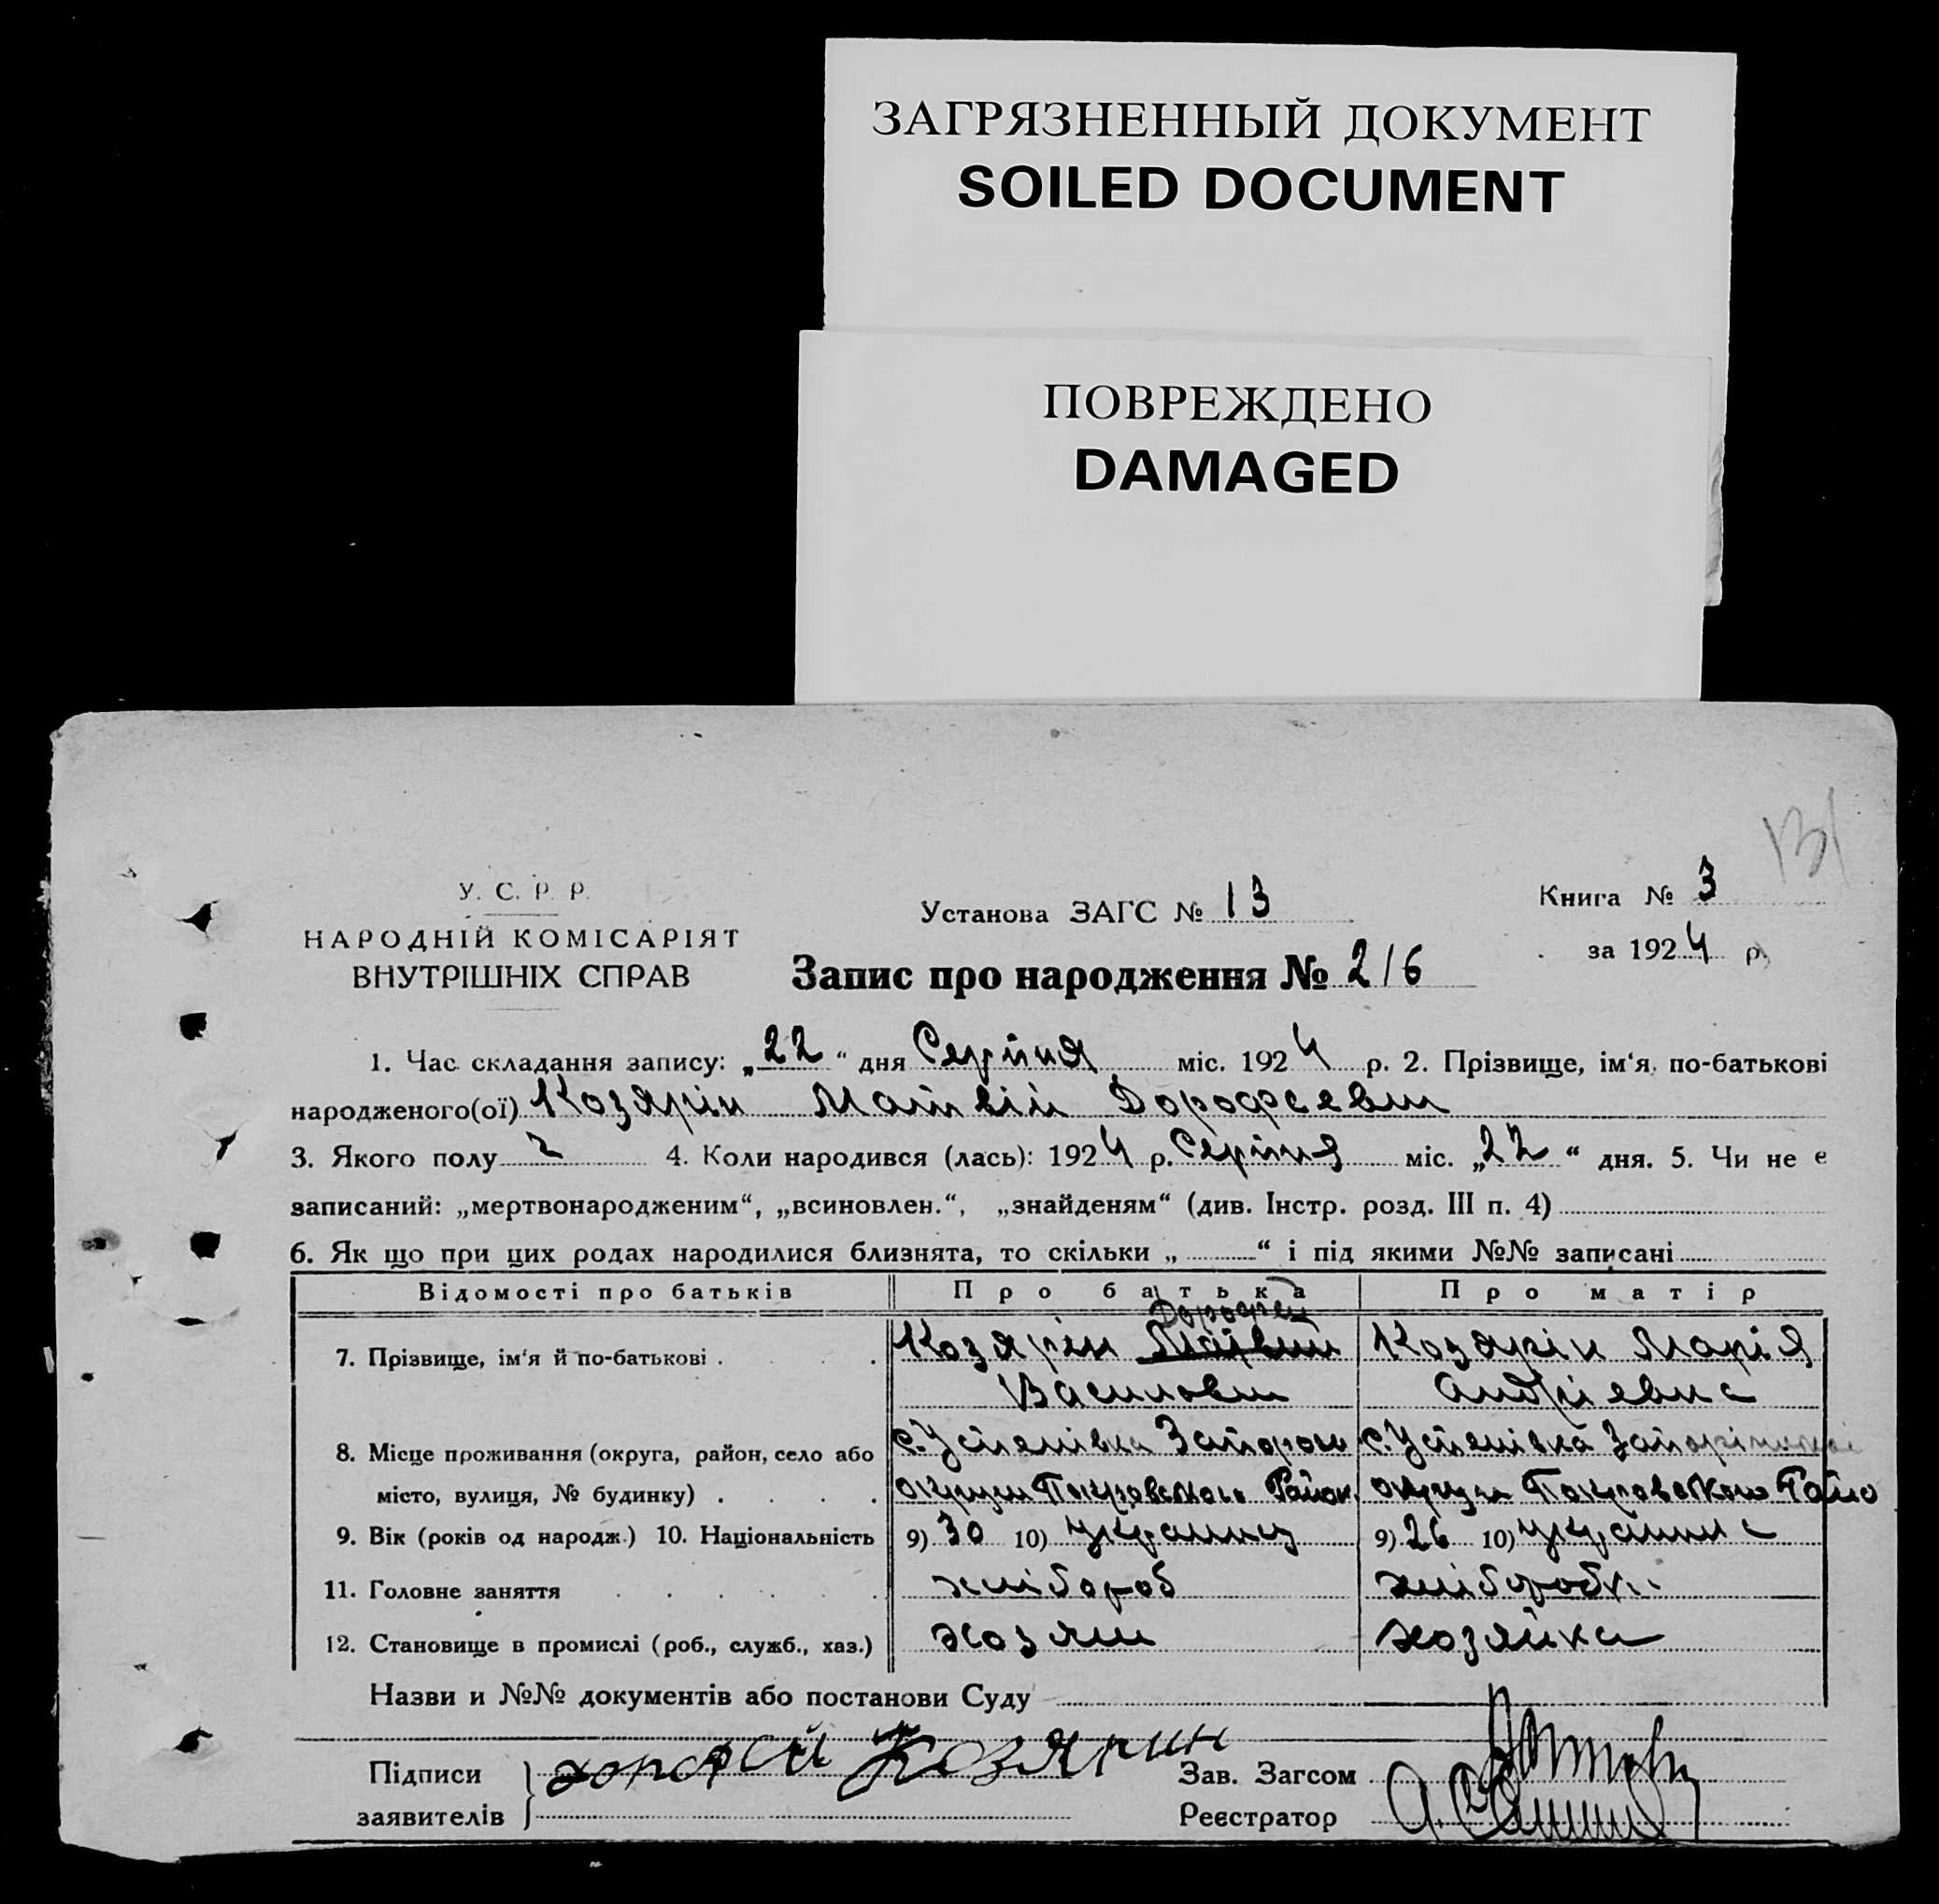 ЗАГРЯЗНЕННЫЙ ДОКУМЕНТ
SOILED DOCUMENT
ПОВРЕЖДЕНО
DAMAGED
131
У. С. Р. Р.
НАРОДНІЙ КОМІСАРІЯТ
ВНУТРІШНІХ СПРАВ
Установа ЗАГС № 13
Книга № 3
за 1924 р.
Запис про народження № 216
1. Час складання запису: „22“ дня Серпня міс. 1924 р. 2. Прізвище, ім‘я, по-батькові
народженого(ої) Козярін Матвій Дорофеевич
3. Якого полу ч 4. Коли народився (лась): 1924 р. Серпня міс. „22“ дня. 5. Чи не є
записаний: „мертвонародженим“, „всиновлен.“, „знайденям“ (див. Інстр. розд. III п. 4)
6. Як що при цих родах народилися близнята, то скільки „ “ і під якими №№ записані
Відомості про батьків Про батька Про матір
Дорофей
7. Прізвище, ім‘я й по-батькові . . . . Козярін Матвій Козярін Марія
Василович Андріевна
8. Місце проживання (округа, район, село або с. Успенівка Запорож с. Успенівка Запоріжської
місто, вулиця, № будинку) . . . . округи Покровського Район. округи Покровського Райо
9. Вік (років од народж.) 10. Національність 9) 30 10) українец 9) 26 10) украинка
11. Головне заняття . . . . . . хлібороб хліборобка
12. Становище в промислі (роб., служб., хаз.) хозяин хозяйка
Назви и №№ документів або постанови Суду
Підписи заявителів Козярин
Зав. Загсом
Реєстратор